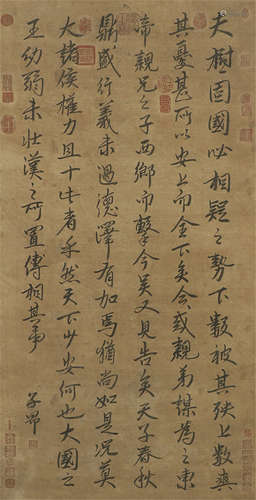 夫樹固國必相疑之勢下數被其殃上數爽
其憂甚所以安上而全下矣今或親弟謀為之東
帝親兄之子西鄉而擊今吳又見告矣天子春秋
鼎盛行義未過德澤有加焉猶尚如是況莫
大諸侯權力且十此者乎然天下少安何也大國之
王幼弱未壯漢之所置傅相其事
子昂